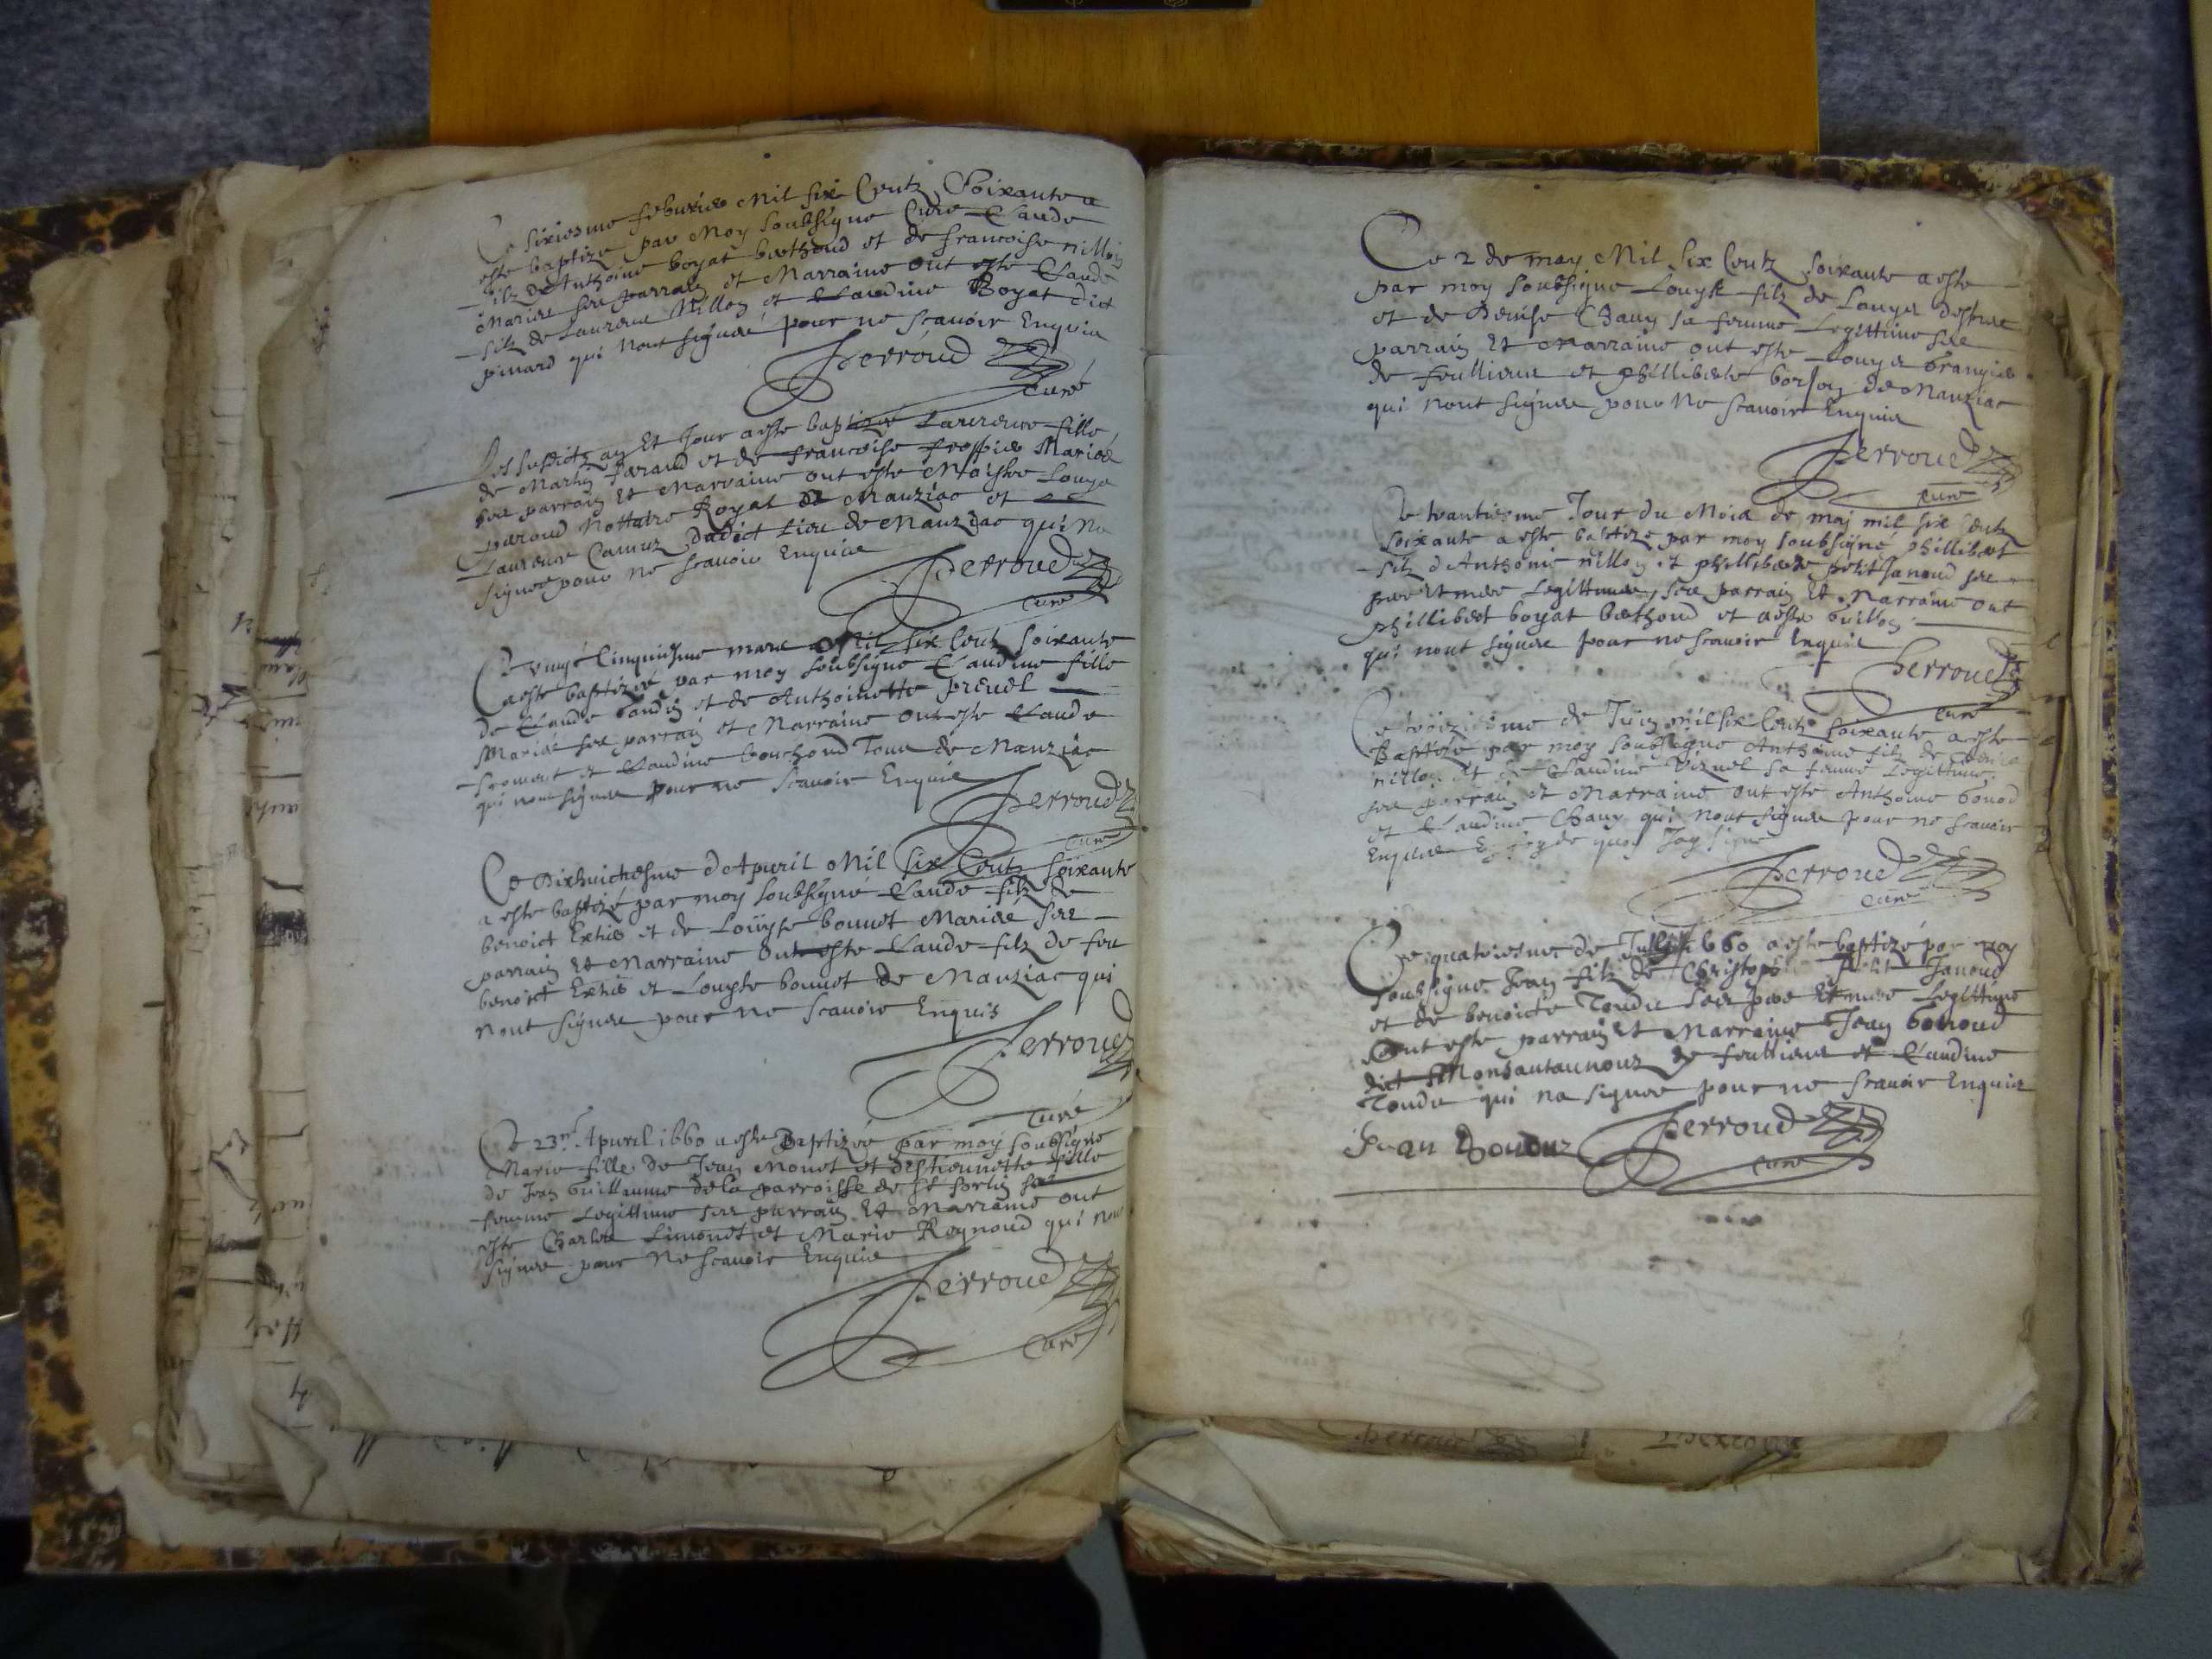 Ce sixiesme febvrier Mil six Centz Soixante a
este baptize par Moy soubsigne Cure Claude
filz de Anthoine boyat berthoud et de francoise nillon
Mariés ses parrain et Marraine ont este Claude
filz de Laurens Nillon et Claudine Boyat dict
pinard qui nont signés pour ne scavoir Enquis
Perroud
curé
Les susdictz an Et Jour a este baptizee Laurence fille
de Martin Paraud et de francoise froppier Mariés
ses parrain Et Marraine ont este Maistre Louys
paroud Nottaire Royal de Manziac et
Laurence Camuz dudict lieu de Manziac qui na
signee pour ne scavoir Enquise
Perroud
curé
Ce vingt Cinquiesme mars Mil six Centz soixante
a este baptizee par moy soubsigne Claudine fille
de Claude et de Anthoinette preuel
Mariés ses parrain et Marraine ont este Claude
froment et Claudine bouchoud Tous de Manziac
qui nont signes pour ne scavoir Enquis
Perroud
curé
Ce Dixhuictiesme d Apuril Mil six Centz soixante
a este baptizé par moy soubsigné Claude filz de
benoict Extier et de Louyse bonnet Mariés ses
parrain Et Marraine ont este Claude filz de feu
benoict Extier et Louyse bonnet de Manziac qui
nont signes pour ne scavoir Enquis
Perroud
Curé
Ce 23me Apuril 1660 a este Baptizée par moy soubsigne
Marie fille de Jean Monet et destiennette fille
de Jean Guillaume de la parroisse de St sorlin sa
femme Legittime ses parrain Et Marraine ont
este Charles Limonet et Marie Reynoud qui nont
signes pour Ne scavoir Enquis
Perroud
Curé
Ce 2 de may Mil Six Centz soixante a este
par moy soubsigne Louys filz de Louys
et de Denise Chanu sa femme Legittime ses
parrain Et Marraine ont este Louys Grangier
de feullieus et Philliberte borjon de Manziac
qui nont signes pour Ne scavoir Enquis
Perroud
curé
Le trantiesme Jour du Mois de may mil six Centz
soixante a este baptize par moy soubsigné phillibert
filz d Anthoine nillon et phelliberte petit Janoud ses
pere Et mere Legittimes, ses parrain Et Marraine ont
phillibert boyat berthoud et
qui nont signes pour ne scavoir Enquis
Perroud
Curé
Ce troiziesme de Juin mil six Centz soixante a este
Baptize par moy soubsigne Anthoine filz de
nillon Et de Claudine sa femme Legittime
ses parrain et Marraine ont este Anthoine Gonod
et Claudine Chanu qui nont signes pour ne scavoir
Enquis En foy de quoy Jay signe
Perroud
curé
Ce quatriesme de Juillet 1660 a este baptizé par moy
soubsigne Jean filz de Christophe Petit Janoud
et de benoiste Tondu ses pere Et mere Legittime
Ont este parrain Et Marraine Jean Gonoud
dict de feullieus et Claudine
Tondu qui na signee pour ne scavoir Enquis
Perroud
Jean
curé